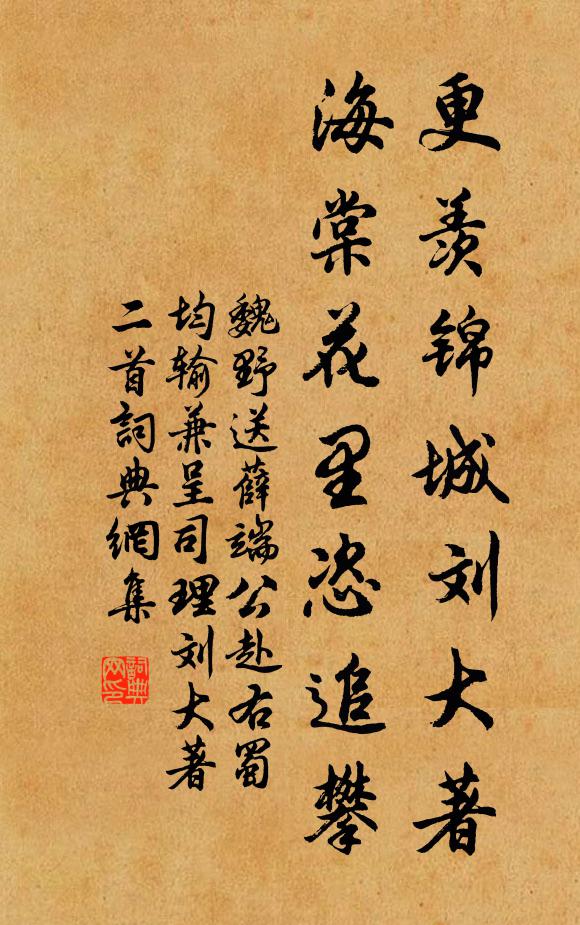 更羡锦城刘大著
海棠花里恣追攀
魏野送薛端公赴右蜀
均输兼呈司理刘大著
二首詞典網集
詞典
网印